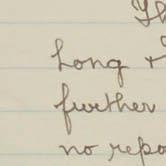 Th
Long &
further
no repo